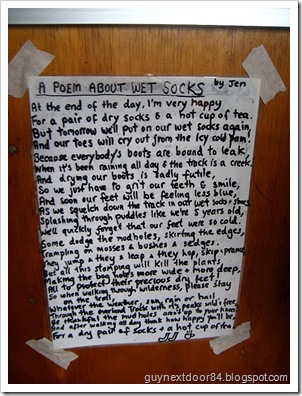 A POEM ABOUT WET SOCKS
by Jen
At the end of the day, I'm very happy
For a pair of dry socks & a hot cup of tea.
But tomorrow we'll put on our wet socks again,
And our toes will cry out from the icy cold pain!
Because everybody's boots are bound to leak,
When it's been raining all day & the track is a creek.
And drying our boots is sadly futile,
So we just have to grit our teeth & smile,
And soon our feet will be feeling less blue,
As we squelch down the track in our wet socks & shoes
Splashing through puddles like we're 5 years old,
We'll quickly forget that our feet were so cold.
Some dodge the mud holes, skirting the edges,
Tramping on mosses & bushes & sedges.
They jump & they leap & they hop, skip & prance,
But all this stomping will kill the plants,
Making the bog holes more wide & more deep,
All to protect their precious dry feet.
So when walking through wilderness, please stay
on the trail
Whatever the weather, sun, rain or hail.
Through the Overland Track with it's peaks wild & free,
Be thankful the mud holes aren't up to your knees
And after walking all day think how happy you'll be,
For a dry pair of socks & a hot cup of tea.
guynextdoor84.blogspot.com